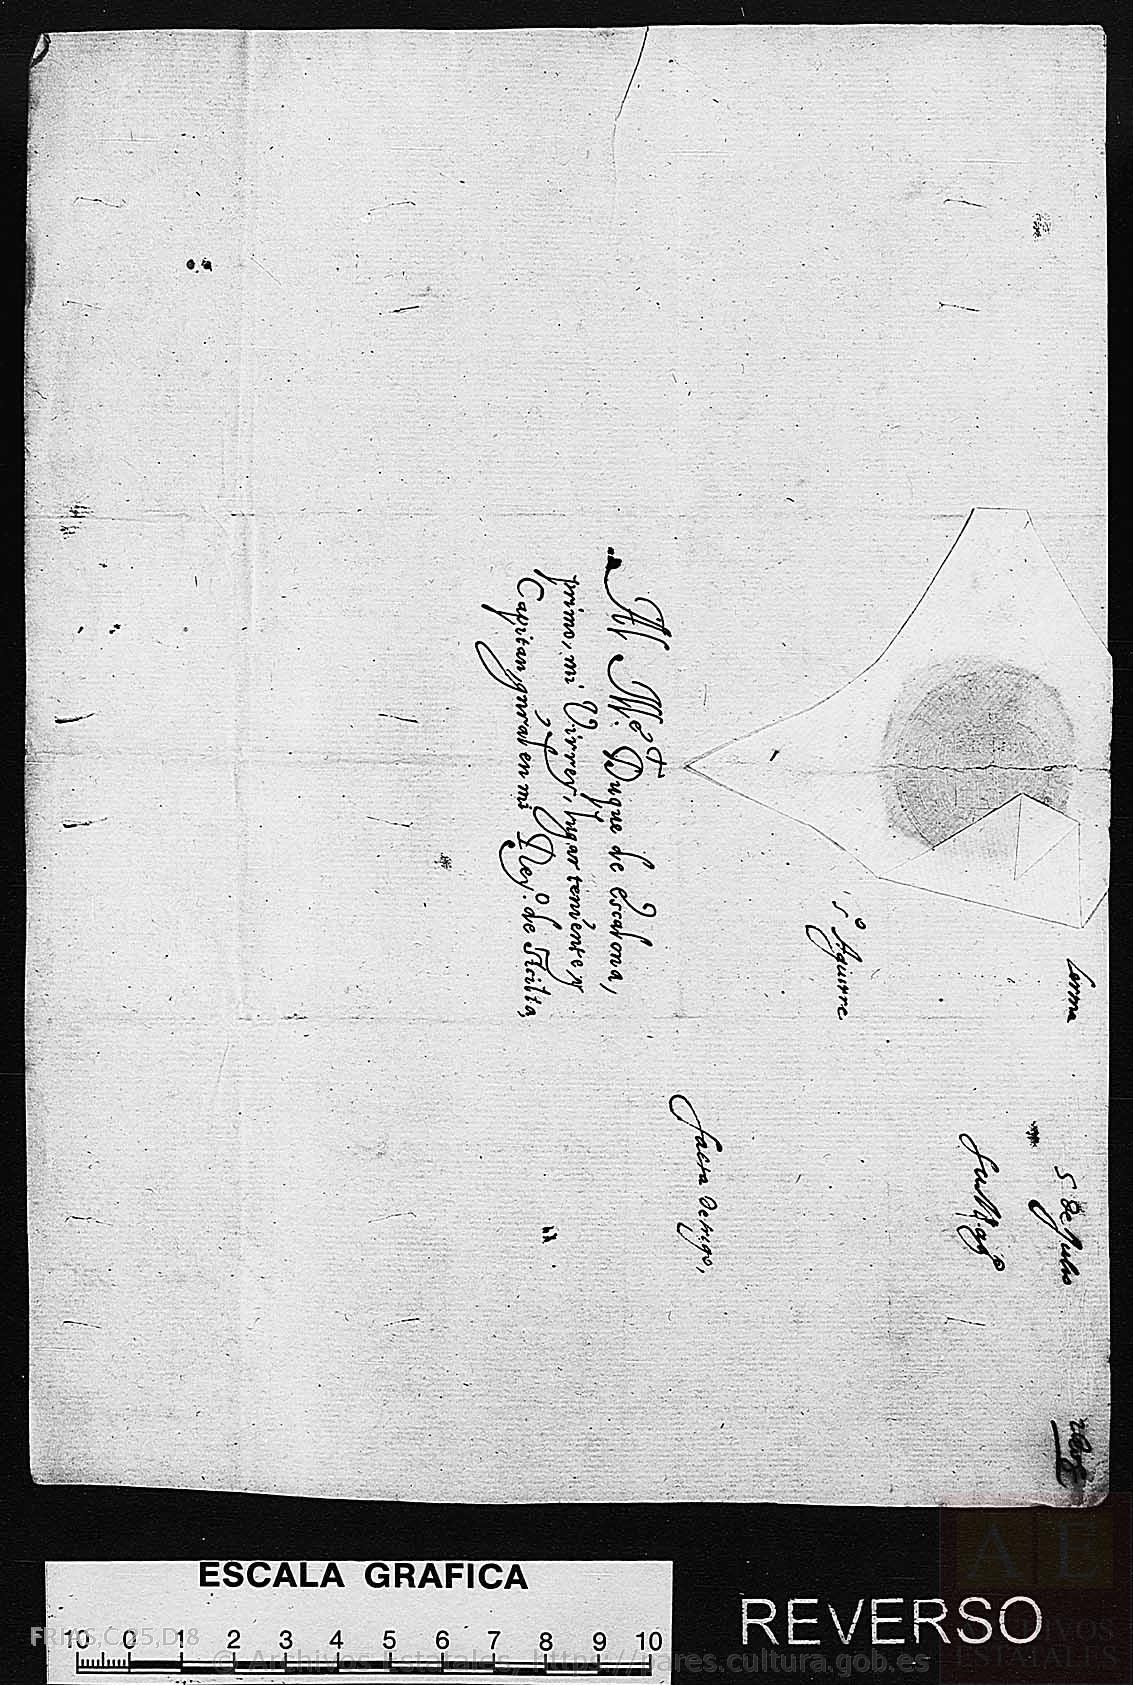 Al Mar. Duque de Escalona,
primo, mi Virrey, lugarteniente y
Capitan general en mi Rey.º de Sicilia,
Sº Aguirre
Lerma
5 de Julio
Su Magd
ESCALA GRAFICA
10 0 1 2 3 4 5 6 7 8 9 10
REVERSO
FRIAS,C.125,D.8
© Archivos Estatales, https://pares.cultura.gob.es
AE
ARCHIVOS
ESTATALES